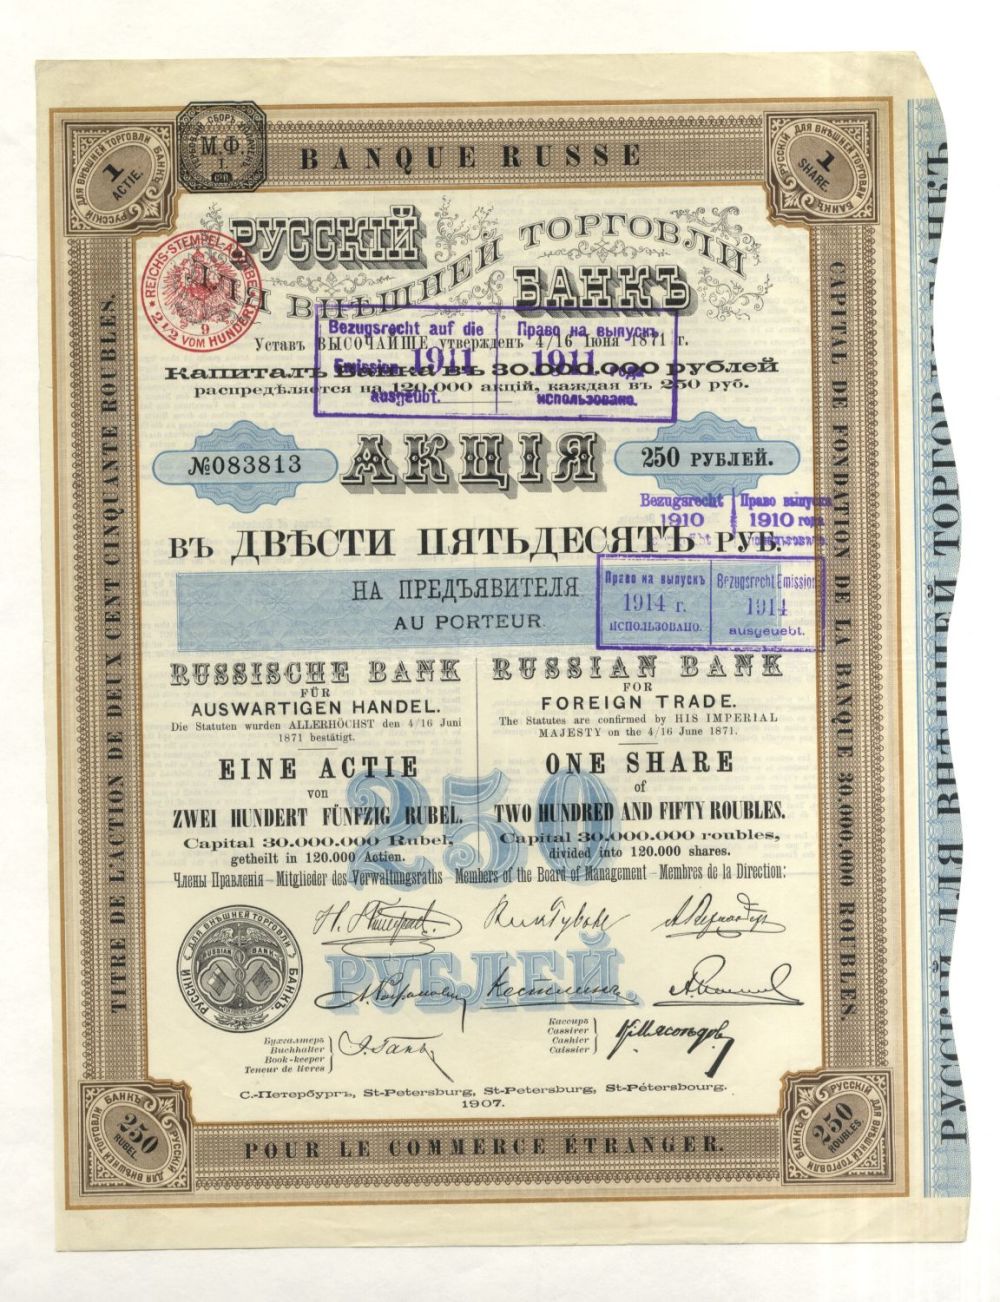 BANQUE RUSSE
ДЛЯ ВНѢШНЕЙ ТОРГОВЛИ БАНКЪ
РУССКІЙ
1
ACTIE.
М.Ф.
1
ДЛЯ ВНѢШНЕЙ ТОРГОВЛИ БАНКЪ
РУССКІЙ
1
SHARE.
РУССКІЙ
ДЛЯ ВНѢШНЕЙ ТОРГОВЛИ
БАНКЪ
REICHS-STEMPEL-ABGABE
9
2 1/2 VOM HUNDERT
Bezugsrecht auf die
Emission 1911
ausgeubt.
Право на выпускъ
1911 года
использовано.
Уставъ ВЫСОЧАЙШЕ утвержденъ 4/16 Іюня 1871 г.
Капиталъ Банка въ 30.000.000 рублей
распредѣляется на 120.000 акцій, каждая въ 250 руб.
№083813
АКЦІЯ
250 РУБЛЕЙ.
Bezugsrecht
1910
Право выпуска
1910 года
ВЪ ДВѢСТИ ПЯТЬДЕСЯТЪ РУБ.
НА ПРЕДЪЯВИТЕЛЯ
AU PORTEUR
Право на выпускъ
1914 г.
использовано.
Bezugsrecht Emission
1914
ausgeuebt.
RUSSISCHE BANK
FÜR
AUSWÄRTIGEN HANDEL.
Die Statuten wurden ALLERHÖCHST den 4/16 Juni
1871 bestätigt.
EINE ACTIE
von
ZWEI HUNDERT FÜNFZIG RUBEL.
Capital 30.000.000 Rubel,
getheilt in 120.000 Actien.
RUSSIAN BANK
FOR
FOREIGN TRADE.
The Statutes are confirmed by HIS IMPERIAL
MAJESTY on the 4/16 June 1871.
ONE SHARE
of
TWO HUNDRED AND FIFTY ROUBLES.
Capital 30.000.000 roubles,
divided into 120.000 shares.
250
РУБЛЕЙ.
Члены Правленія – Mitglieder des Verwaltungsraths – Members of the Board of Management – Membres de la Direction:
РУССКІЙ ДЛЯ ВНѢШНЕЙ ТОРГОВЛИ БАНКЪ.
RUSSIAN BANK
Бухгалтеръ
Buchhalter
Book-keeper
Teneur de livres
Кассиръ
Cassirer
Cashier
Caissier
С.-Петербургъ, St-Petersburg, St-Petersburg, St-Pétersbourg.
1907.
TITRE DE L'ACTION DE DEUX CENT CINQUANTE ROUBLES.
CAPITAL DE FONDATION DE LA BANQUE 30.000.000 ROUBLES
РУССКІЙ ДЛЯ ВНѢШНЕЙ ТОРГОВЛИ БАНКЪ
ДЛЯ ВНѢШНЕЙ ТОРГОВЛИ БАНКЪ
РУССКІЙ
250
RUBEL
РУССКІЙ
ДЛЯ ВНѢШНЕЙ ТОРГОВЛИ
БАНКЪ
250
ROUBLES
POUR LE COMMERCE ÉTRANGER.